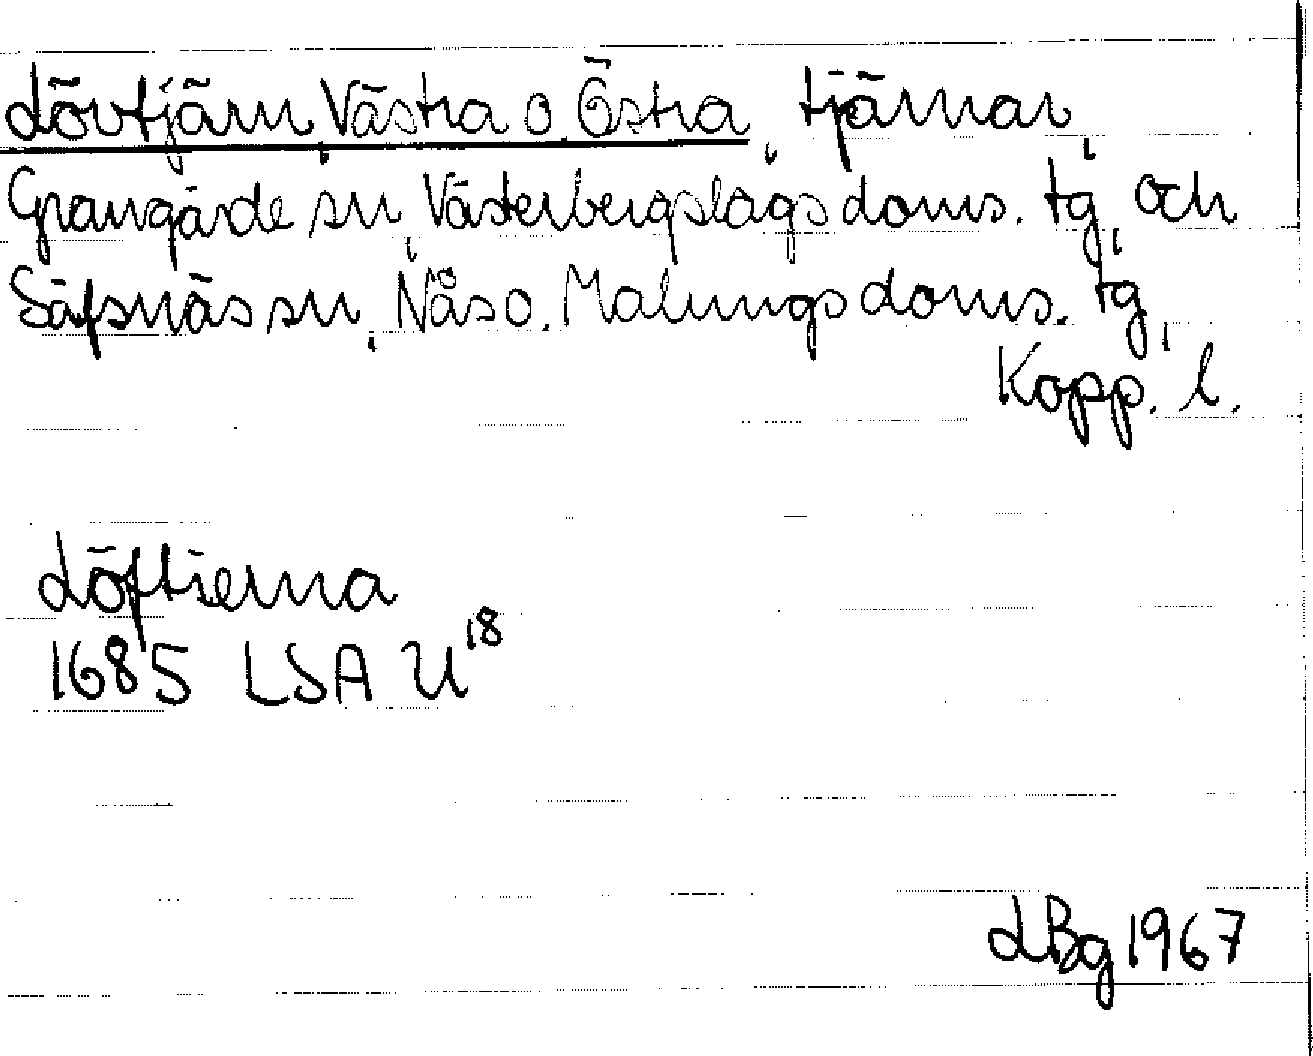 Lövtjärn, Västra o. Östra, tjärnar,
Grangärde sn, Västerbergslags doms. tg, och
Säfsnäs sn, Nås o. Malungs doms. tg,
Kopp. l.
Löftierna
1685 LSA U18
LBg 1967